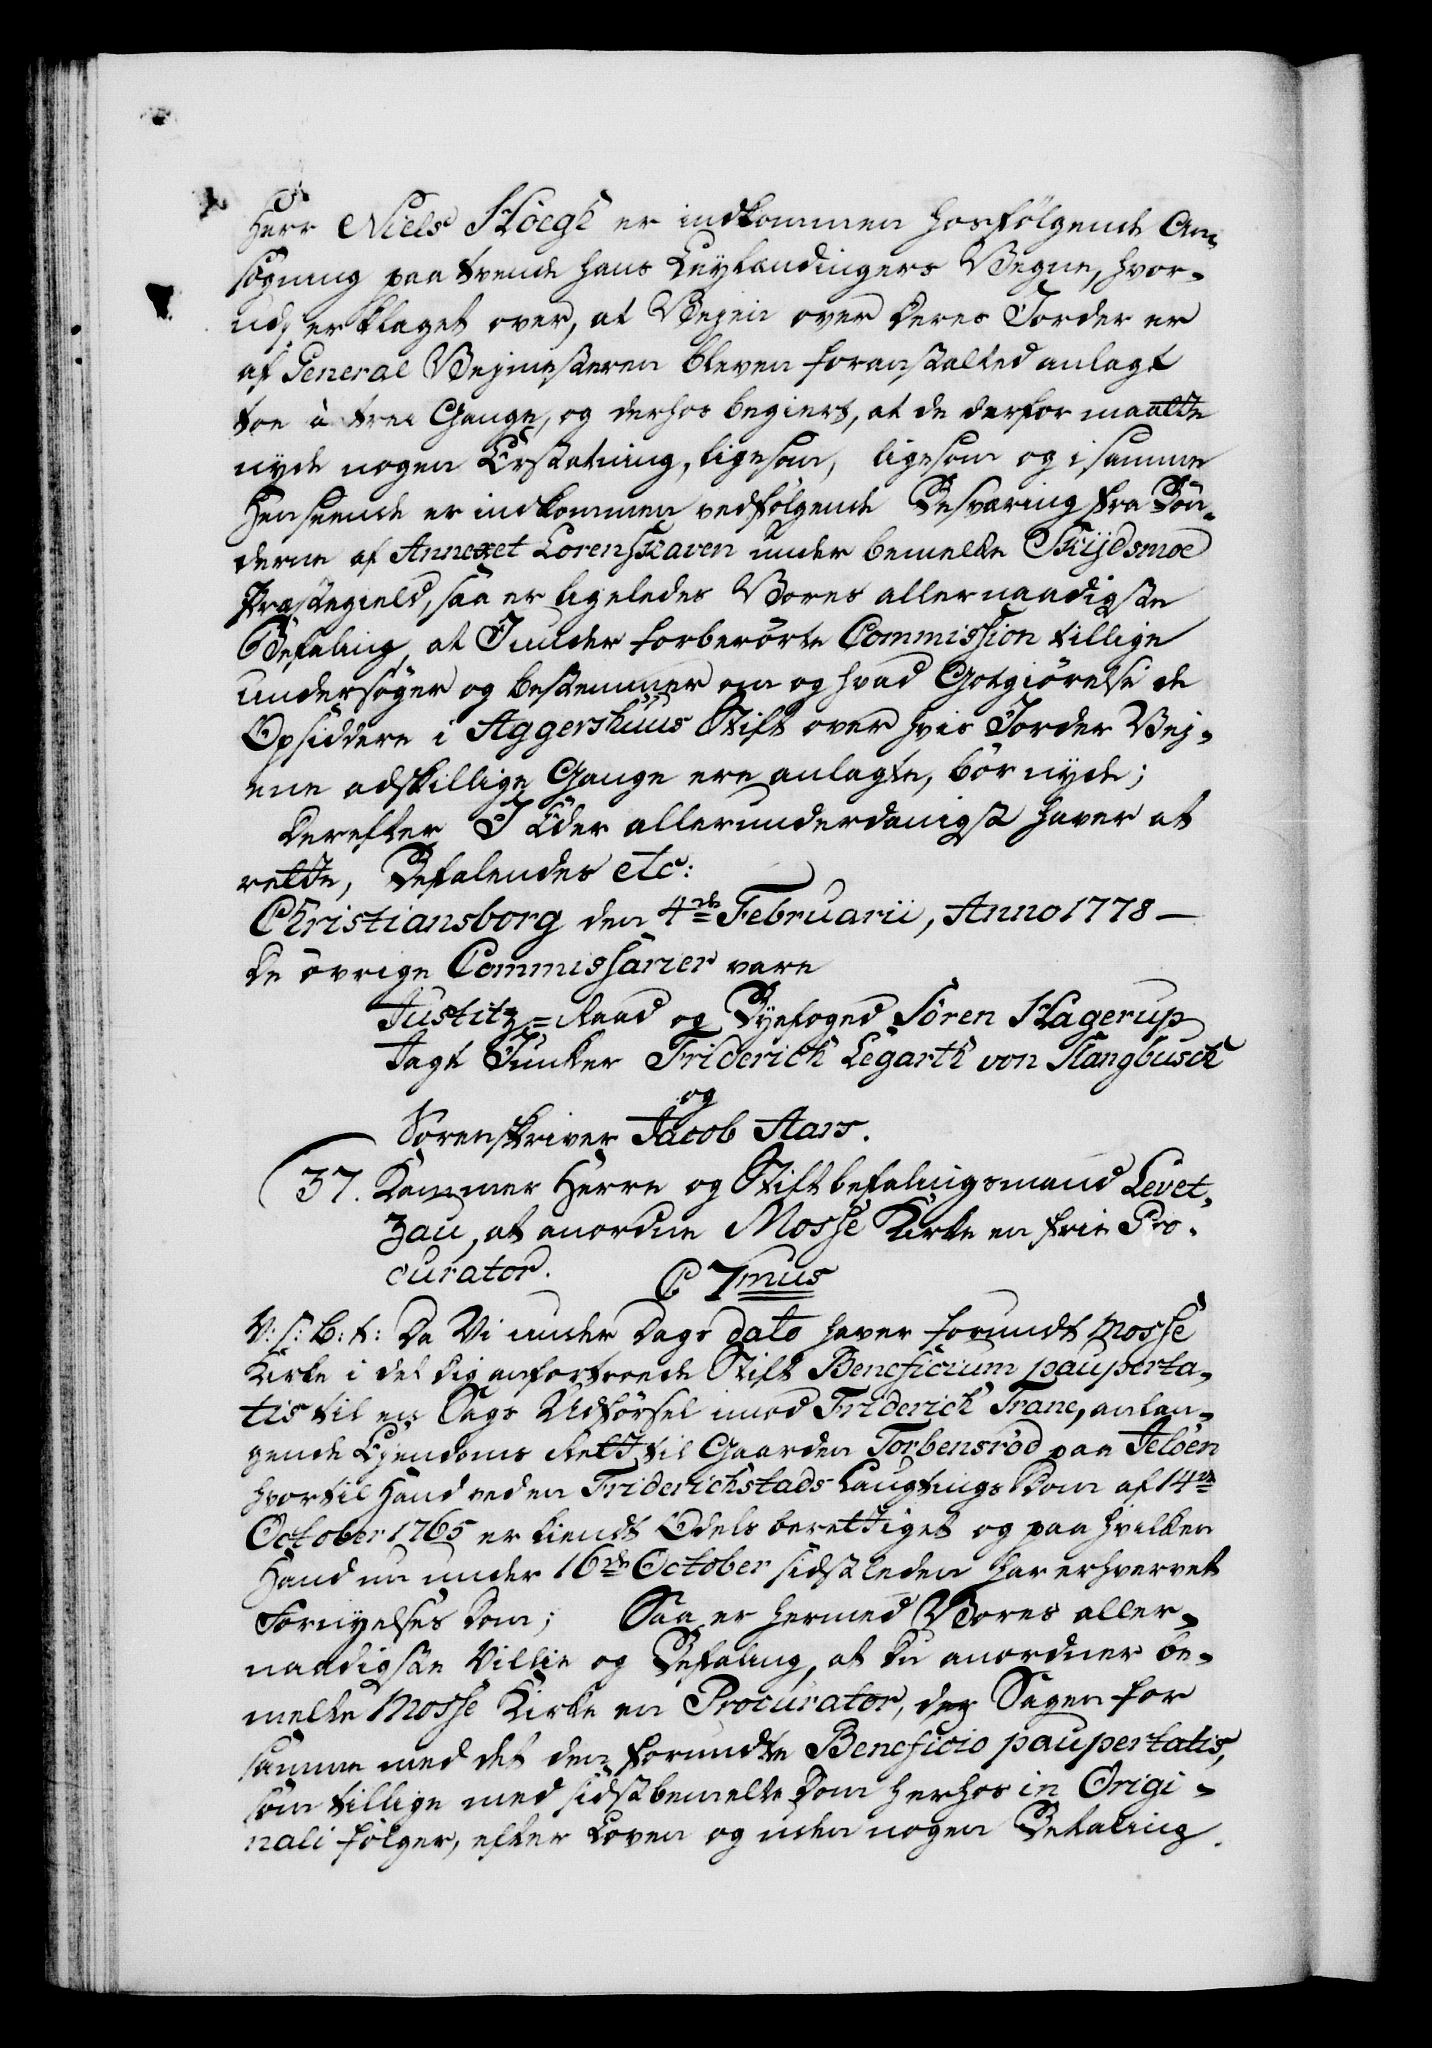 Herr Niels Höegh er indkommen hosfölgende An-
sögning paa tvende hans Leylændingers Vegne, hvor-
udj er klaget over, at Vejen over deres Jorder er
af General Vejmesteren bleven foranstalted anlagt
toe à trei Gange, og derhos begiert, at de derfor maatte
nyde nogen Erstatning, ligesom, ligesom og i samme
Henseende er indkommen vedfölgende Besværing fra Bön-
derne af Annexet Lorenskaven under bemelte Skijdsmoe
Præstegield, saa er ligeledes Vores allernaadigste
Befaling, at I under forberörte Commission tillige
undersöger og bestemmer om og hvad Gotgiörelse de
Opsiddere i Aggershuus Stift over hvis Jorder Vej-
ene adskillige Gange ere anlagte, bör nyde;
Derefter I Eder allerunderdanigst haver at
rette, Befalendes etc:
Christiansborg den 4de Februarii, Anno 1778 —
De övrige Commissarier vare
Justitz-Raad og Byefoged Sören Hagerup
Jagt Junker Friderich Legarth von Stangbusch
og
Sorenskriver Jacob Aars.
37. Kammer Herre og Stiftbefalingsmand Levet-
zau, at anordne Mosse Kirke en frie Pro-
curator. C 7mus
V: S: B: t: Da Vi under Dags dato haver forundt Mosse
Kirke i det dig anfortroede Stift Beneficium pauperta-
tis til en Sags Udförsel imod Friderich Trane, anlan-
gende Ejendoms Rett til Gaarden Torbensröd paa Jelöen
hvortil Hand ved en Friderichstads Laugtings Dom af 14de
October 1765 er kiendt Odels berettiget og paa hvilken
Hand nu under 16de October sidstleden har erhvervet
Fornyelses Dom; Saa er hermed Vores aller-
naadigste Villie og Befaling, at du anordner be-
melte Mosse Kirke en Procurator, der Sagen for
samme med det den forundte Beneficio paupertatis,
som tillige med sidstbemelte Dom herhos in Origi-
nali fölger, efter Loven og uden nogen Betaling.